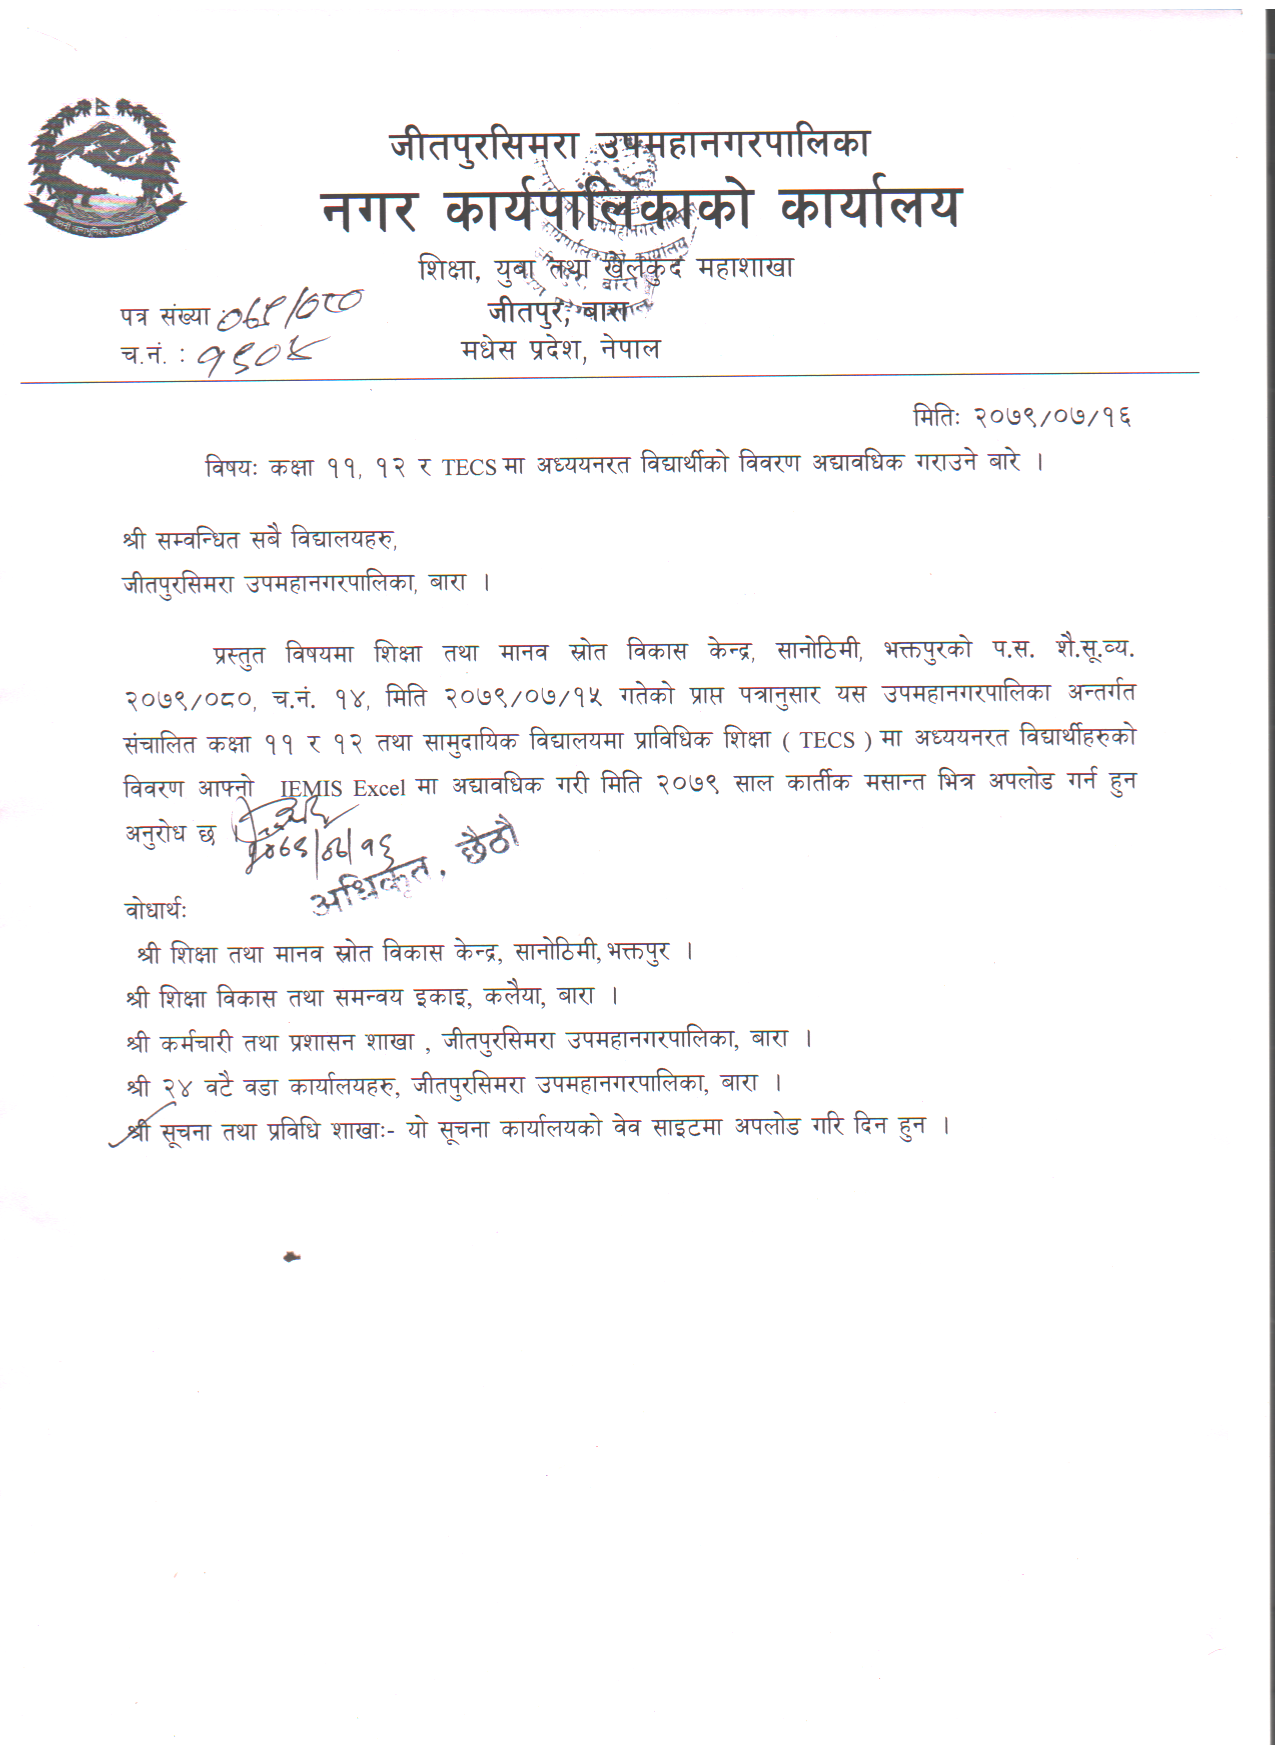 जीतपुरसिमरा उपमहानगरपालिका
नगर कार्यपालिकाको कार्यालय
शिक्षा, युवा तथा खेलकुद महाशाखा
पत्र संख्या : ०७९/०८०
जीतपुर, बारा
च.नं. :
मधेस प्रदेश, नेपाल
मितिः २०७९/०७/१६
विषयः कक्षा ११, १२ र TECS मा अध्ययनरत विद्यार्थीको विवरण अद्यावधिक गराउने बारे ।
श्री सम्वन्धित सबै विद्यालयहरु,
जीतपुरसिमरा उपमहानगरपालिका, बारा ।
प्रस्तुत विषयमा शिक्षा तथा मानव स्रोत विकास केन्द्र, सानोठिमी, भक्तपुरको प.स. शै.सू.व्य.
२०७९/०८०, च.नं. १४, मिति २०७९/०७/१५ गतेको प्राप्त पत्रानुसार यस उपमहानगरपालिका अन्तर्गत
संचालित कक्षा ११ र १२ तथा सामुदायिक विद्यालयमा प्राविधिक शिक्षा ( TECS ) मा अध्ययनरत विद्यार्थीहरुको
विवरण आफ्नो IEMIS Excel मा अद्यावधिक गरी मिति २०७९ साल कार्तीक मसान्त भित्र अपलोड गर्न हुन
अनुरोध छ ।
२०७९/०७/१६
अधिकृत, छैठौ
वोधार्थः
श्री शिक्षा तथा मानव स्रोत विकास केन्द्र, सानोठिमी, भक्तपुर ।
श्री शिक्षा विकास तथा समन्वय इकाइ, कलैया, बारा ।
श्री कर्मचारी तथा प्रशासन शाखा , जीतपुरसिमरा उपमहानगरपालिका, बारा ।
श्री २४ वटै वडा कार्यालयहरु, जीतपुरसिमरा उपमहानगरपालिका, बारा ।
श्री सूचना तथा प्रविधि शाखाः- यो सूचना कार्यालयको वेव साइटमा अपलोड गरि दिन हुन ।